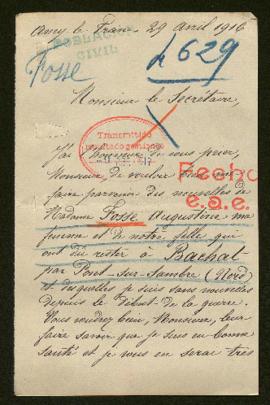 Amy le Franc 29 avril 1916
POBLACION
CIVIL
Fosse
629
Monsieur le Secrétaire,
Transmitido
J'ai l'honneur de vous prier,
Monsieur de vouloir bien me
Fecho
faire parvenir des nouvelles de
e.a.e.
Madame Fosse Augustine ma
femme et de notre fille qui
ont dû rester à Bachat
par Pont-sur-Sambre (Nord)
et desquelles je suis sans nouvelles
depuis le début de la guerre.
Vous voudrez bien, Monsieur, leur
faire savoir que je suis en bonne
santé et je vous en serai très